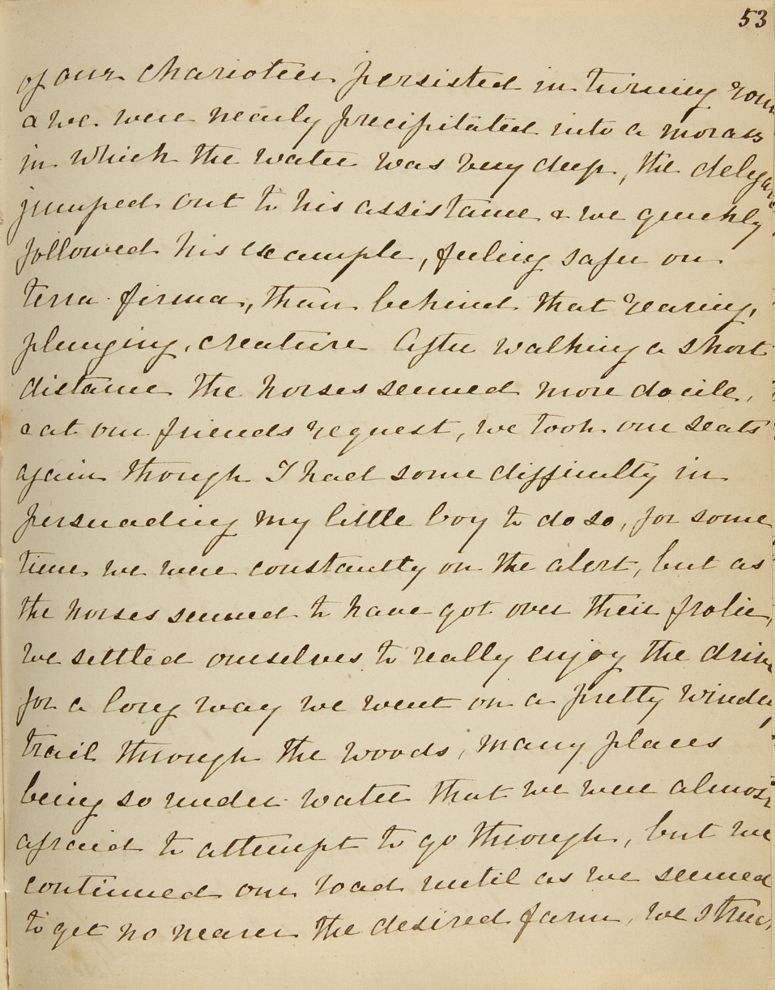 53
of our charioteer persisted in turning roun
& we were nearly precipitated into a morass
in which the water was very deep, the delegate
jumped out to his assistance & we quickly
followed his example, feeling safer on
terra firma, than behind that rearing,
plunging, creature After walking a short
distance the horses seemed more docile,
& at our friends request, we took our seats
again though I had some difficulty in
persuading my little boy to do so, for some
time we were constantly on the alert, but as
the horses seemed to have got over their frolic,
we settled ourselves to really enjoy the drive
for a long way we went on a pretty winding
trail through the woods, many places
being so under water that we were almost
afraid to attempt to go through, but we
continued our road until as we seemed
to get no nearer the desired farm, we struck